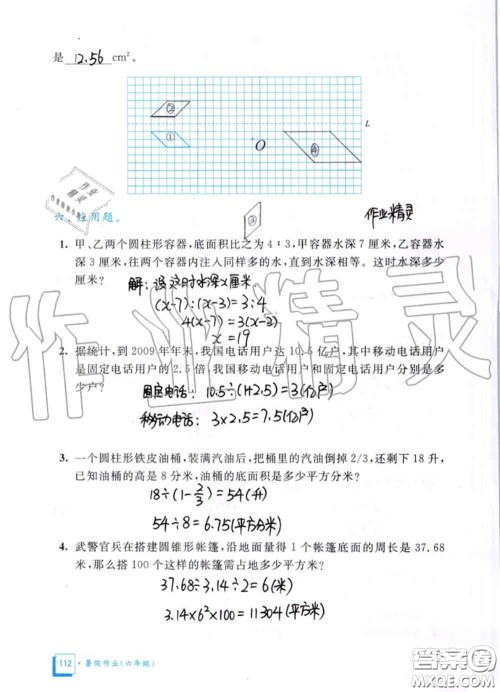 是 12.56 cm²。
②
①
O
L
④
③
作业精灵
六、应用题。
作业精灵
1. 甲、乙两个圆柱形容器,底面积比之为 4∶3,甲容器水深 7 厘米,乙容器水
深 3 厘米,往两个容器内注入同样多的水,直到水深相等。这时水深多少
厘米?
解:设这时水深x厘米
(x-7):(x-3)=3:4
4(x-7)=3(x-3)
x=19
2. 据统计,到 2009 年年末,我国电话用户达 10.5 亿户,其中移动电话用户
是固定电话用户的 2.5 倍,我国移动电话用户和固定电话用户分别是多
少户?
固定电话:10.5÷(1+2.5)=3(亿户)
移动电话:3×2.5=7.5(亿户)
3. 一个圆柱形铁皮油桶,装满汽油后,把桶里的汽油倒掉 2/3,还剩下 18 升,
已知油桶的高是 8 分米,油桶的底面积是多少平方分米?
18÷(1-2/3)=54(升)
54÷8=6.75(平方分米)
4. 武警官兵在搭建圆锥形帐篷,沿地面量得 1 个帐篷底面的周长是 37.68
米,那么搭 100 个这样的帐篷需占地多少平方米?
37.68÷3.14÷2=6(米)
3.14×6²×100=11304(平方米)
112 · 暑假作业(六年级)
答案圈
MXQE.COM